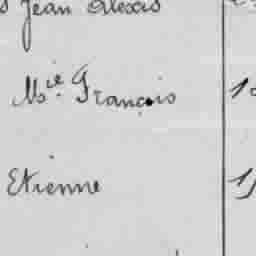 Jean Alexis
Mie. François
Etienne